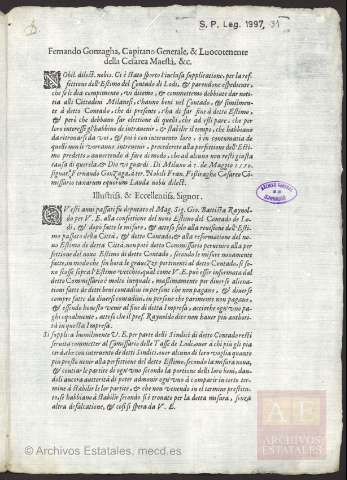 S. P. Leg. 1997, 31
Fernando Gonzagha, Capitano Generale, & Luocotenente
della Cesarea Maestà, &c.
Nobil. dilect. nobis. Ci è stato sporto l'inclusa supplicatione, per la ref-
fettione dell'Estimo del Contado di Lodi, & parendone espediente,
che se li dia compimento, vi diremo, & commettemo debbiate dar noti-
tia alli Cittadini Milanesi, c'hanno beni nel Contado, & similmen-
te à detto Contado, di presente, che s'ha da far fine à detto Estimo,
& però che debbano far elettione di quelli, che ad essi pare, che per
loro interesse gl'habbino di intravenire, & stabilir il tempo, che habbiano
da ritrovarsi da voi, & poi ò con intervento loro, ò in contumatia de
quelli non vi verranno intervenir, procederete alla perfettione dell'Esti-
mo predetto, avvertendo à fare di modo, che ad alcuno non resti giusta
causa di querela. Dio vi guardi. Di Milano à
signat. Fernando Gonzaga, Nobili Fran. Fissiragho Cesareo Com-
missario taxarum equorum Laudæ nobis dilect.
Illustriss. & Eccellentiss. Signor.
Questi anni passati fu deputato el Mag. Sig. Gio. Battista Raynol-
do per V. E. alla confettione del novo Estimo del Contado de Lo-
di, & dopò fatte le misure, & atteso solo alla revisione dell'Esti-
mo passato della Città, & detto Contado, & alla reformatione del no-
vo Estimo de detta Città, non potè detto Commissario pervenire alla per-
fettione del novo Estimo di detto Contado, secondo le misure novamente
fatte, in modo che sin hora le gravezze pertinenti al detto Contado, si so-
no scosse sopra l'Estimo vecchio, qual come V. E. può esser informata dal
detto Commissario è molto inequale, massimamente per diverse aliena-
tioni fatte de detti beni contadini in persone che non pagano, & diverse
compre fatte da diversi contadini, in persone che parimente non pagano,
& essendo honesto venir al fine di detta Impresa, acciochè ogn'uno pa-
ghi equalmente, attesò che il pref. Raynoldo dice non haver più autho-
rità in questa Impresa.
Si supplica humilmente V. E. per parte delli Sindici di detto Contado resti
servita commetter al Comissario delle Tasse de Lodi, over à chi più gli pia-
ce, che con intervento de detti Sindici, over alcuno di loro voglia quanto
più presto venir alla perfettione del detto Estimo, secondo la misura nova,
& cavar le partite de ogn'uno secondo la portione delli loro beni, dan-
dogli ancora autorità di poter admonir ogn'uno à comparir in certo ter-
mine à stabilir le lor partite, & che non venendo in el termine prefisso-
to, se habbiano à stabilir secondo si è trovato per la detta misura, senza
altra difalcatione, & così si spera da V. E.
AE
ARCHIVOS
ESTATALES
© Archivos Estatales, mecd.es